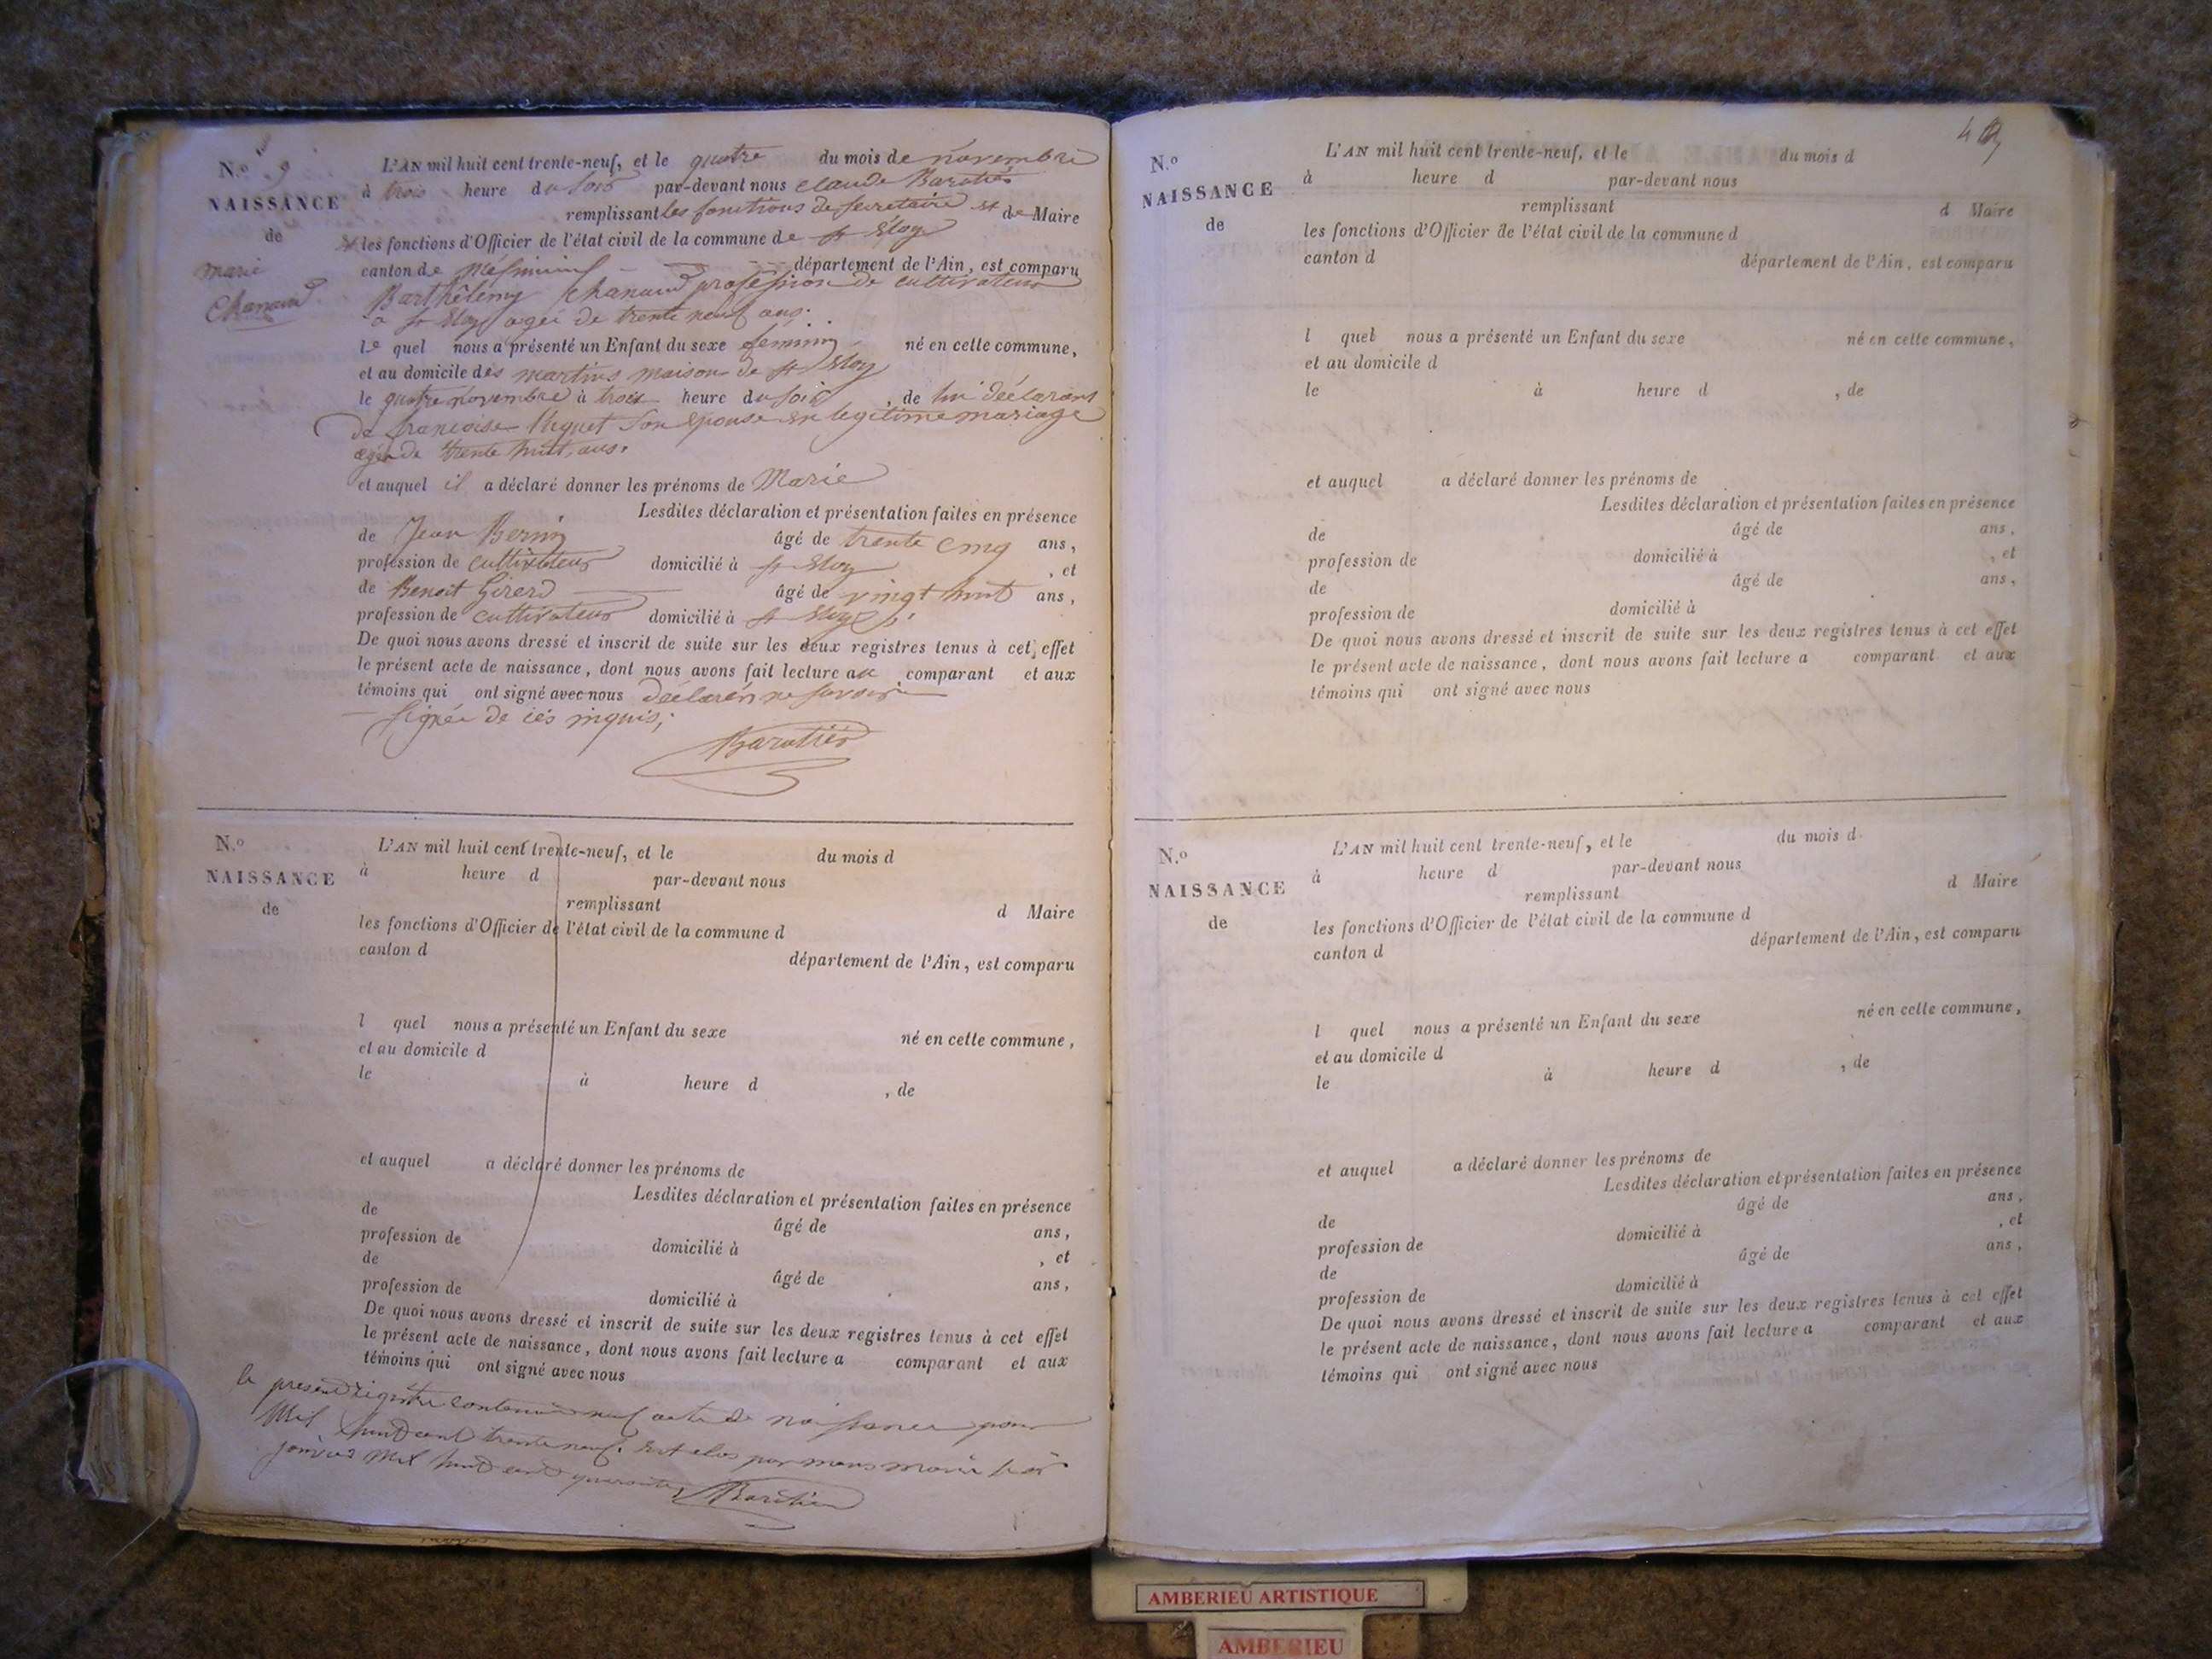 N.o 9
NAISSANCE
de
marie
Chanand
L'AN mil huit cent trente-neuf, et le quatre du mois de novembre
à trois heure du soir par-devant nous Claude Baratier
remplissant les fonctions de secretaire et de Maire
les fonctions d'Officier de l'état civil de la commune de st Eloy
canton de Meximieux département de l'Ain, est comparu
Barthélemy Chanand profession de cultivateur
a st Eloy agée de trente neuf ans.
le quel nous a présenté un Enfant du sexe feminin né en cette commune,
et au domicile des martins maison de st Eloy
le quatre novembre à trois heure du soir, de lui déclarant
de francoise son epouse en legitime mariage
agée de trente huit ans.
et auquel il a déclaré donner les prénoms de Marie
Lesdites déclaration et présentation faites en présence
de Jean Bernin âgé de trente cinq ans,
profession de cultivateur domicilié à st Eloy, et
de Benoit Girerd âgé de vingt huit ans,
profession de cultivateur domicilié à st Eloy
De quoi nous avons dressé et inscrit de suite sur les deux registres tenus à cet effet
le présent acte de naissance, dont nous avons fait lecture au comparant et aux
témoins qui ont signé avec nous déclarén ne savoir
signée de ces inquis;
Baratier
N.o
NAISSANCE
de
L'AN mil huit cent trente-neuf, et le du mois d
à heure d par-devant nous
remplissant d Maire
les fonctions d'Officier de l'état civil de la commune d
canton d département de l'Ain, est comparu
l quel nous a présenté un Enfant du sexe né en cette commune,
et au domicile d
le à heure d , de
et auquel a déclaré donner les prénoms de
Lesdites déclaration et présentation faites en présence
de âgé de ans,
profession de domicilié à , et
de âgé de ans,
profession de domicilié à
De quoi nous avons dressé et inscrit de suite sur les deux registres tenus à cet effet
le présent acte de naissance, dont nous avons fait lecture a comparant et aux
témoins qui ont signé avec nous
le present registre contenant neuf acte de naissance pour
Mil huit cent trente neuf. Est clos par nous maire le
janvier Mil huit cent quarante Baratier
4
N.o
NAISSANCE
de
L'AN mil huit cent trente-neuf, et le du mois d
à heure d par-devant nous
remplissant d Maire
les fonctions d'Officier de l'état civil de la commune d
canton d département de l'Ain, est comparu
l quel nous a présenté un Enfant du sexe né en cette commune,
et au domicile d
le à heure d , de
et auquel a déclaré donner les prénoms de
Lesdites déclaration et présentation faites en présence
de âgé de ans,
profession de domicilié à , et
de âgé de ans,
profession de domicilié à
De quoi nous avons dressé et inscrit de suite sur les deux registres tenus à cet effet
le présent acte de naissance, dont nous avons fait lecture a comparant et aux
témoins qui ont signé avec nous
N.o
NAISSANCE
de
L'AN mil huit cent trente-neuf, et le du mois d
à heure d par-devant nous
remplissant d Maire
les fonctions d'Officier de l'état civil de la commune d
canton d département de l'Ain, est comparu
l quel nous a présenté un Enfant du sexe né en cette commune,
et au domicile d
le à heure d , de
et auquel a déclaré donner les prénoms de
Lesdites déclaration et présentation faites en présence
de âgé de ans,
profession de domicilié à , et
de âgé de ans,
profession de domicilié à
De quoi nous avons dressé et inscrit de suite sur les deux registres tenus à cet effet
le présent acte de naissance, dont nous avons fait lecture a comparant et aux
témoins qui ont signé avec nous
AMBERIEU ARTISTIQUE
AMBERIEU